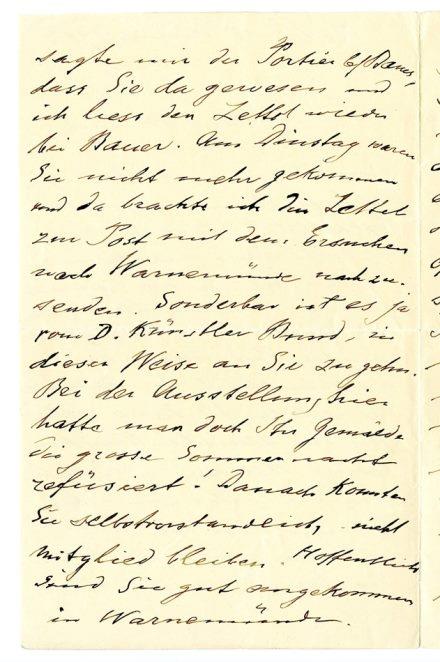 sagte mir der Portier b/ Bauer,
dass Sie da gewesen und
ich liess den Zettel wieder
bei Bauer. Am Dinstag waren
Sie nicht mehr gekommen
und da brachte ich den Zettel
zur Post mit dem Ersuchen
nach Warnemünde nachzu-
senden. Sonderbar ist es ja
vom D. Künstler Bund, in
dieser Weise an Sie zu gehn.
Bei der Ausstellung hier
hatte man doch Ihr Gemälde
die grosse Sommernacht
refüsiert! Danach konnten
Sie selbstverständlich nicht
Mitglied bleiben. Hoffentlich
sind Sie gut angekommen
in Warnemünde.